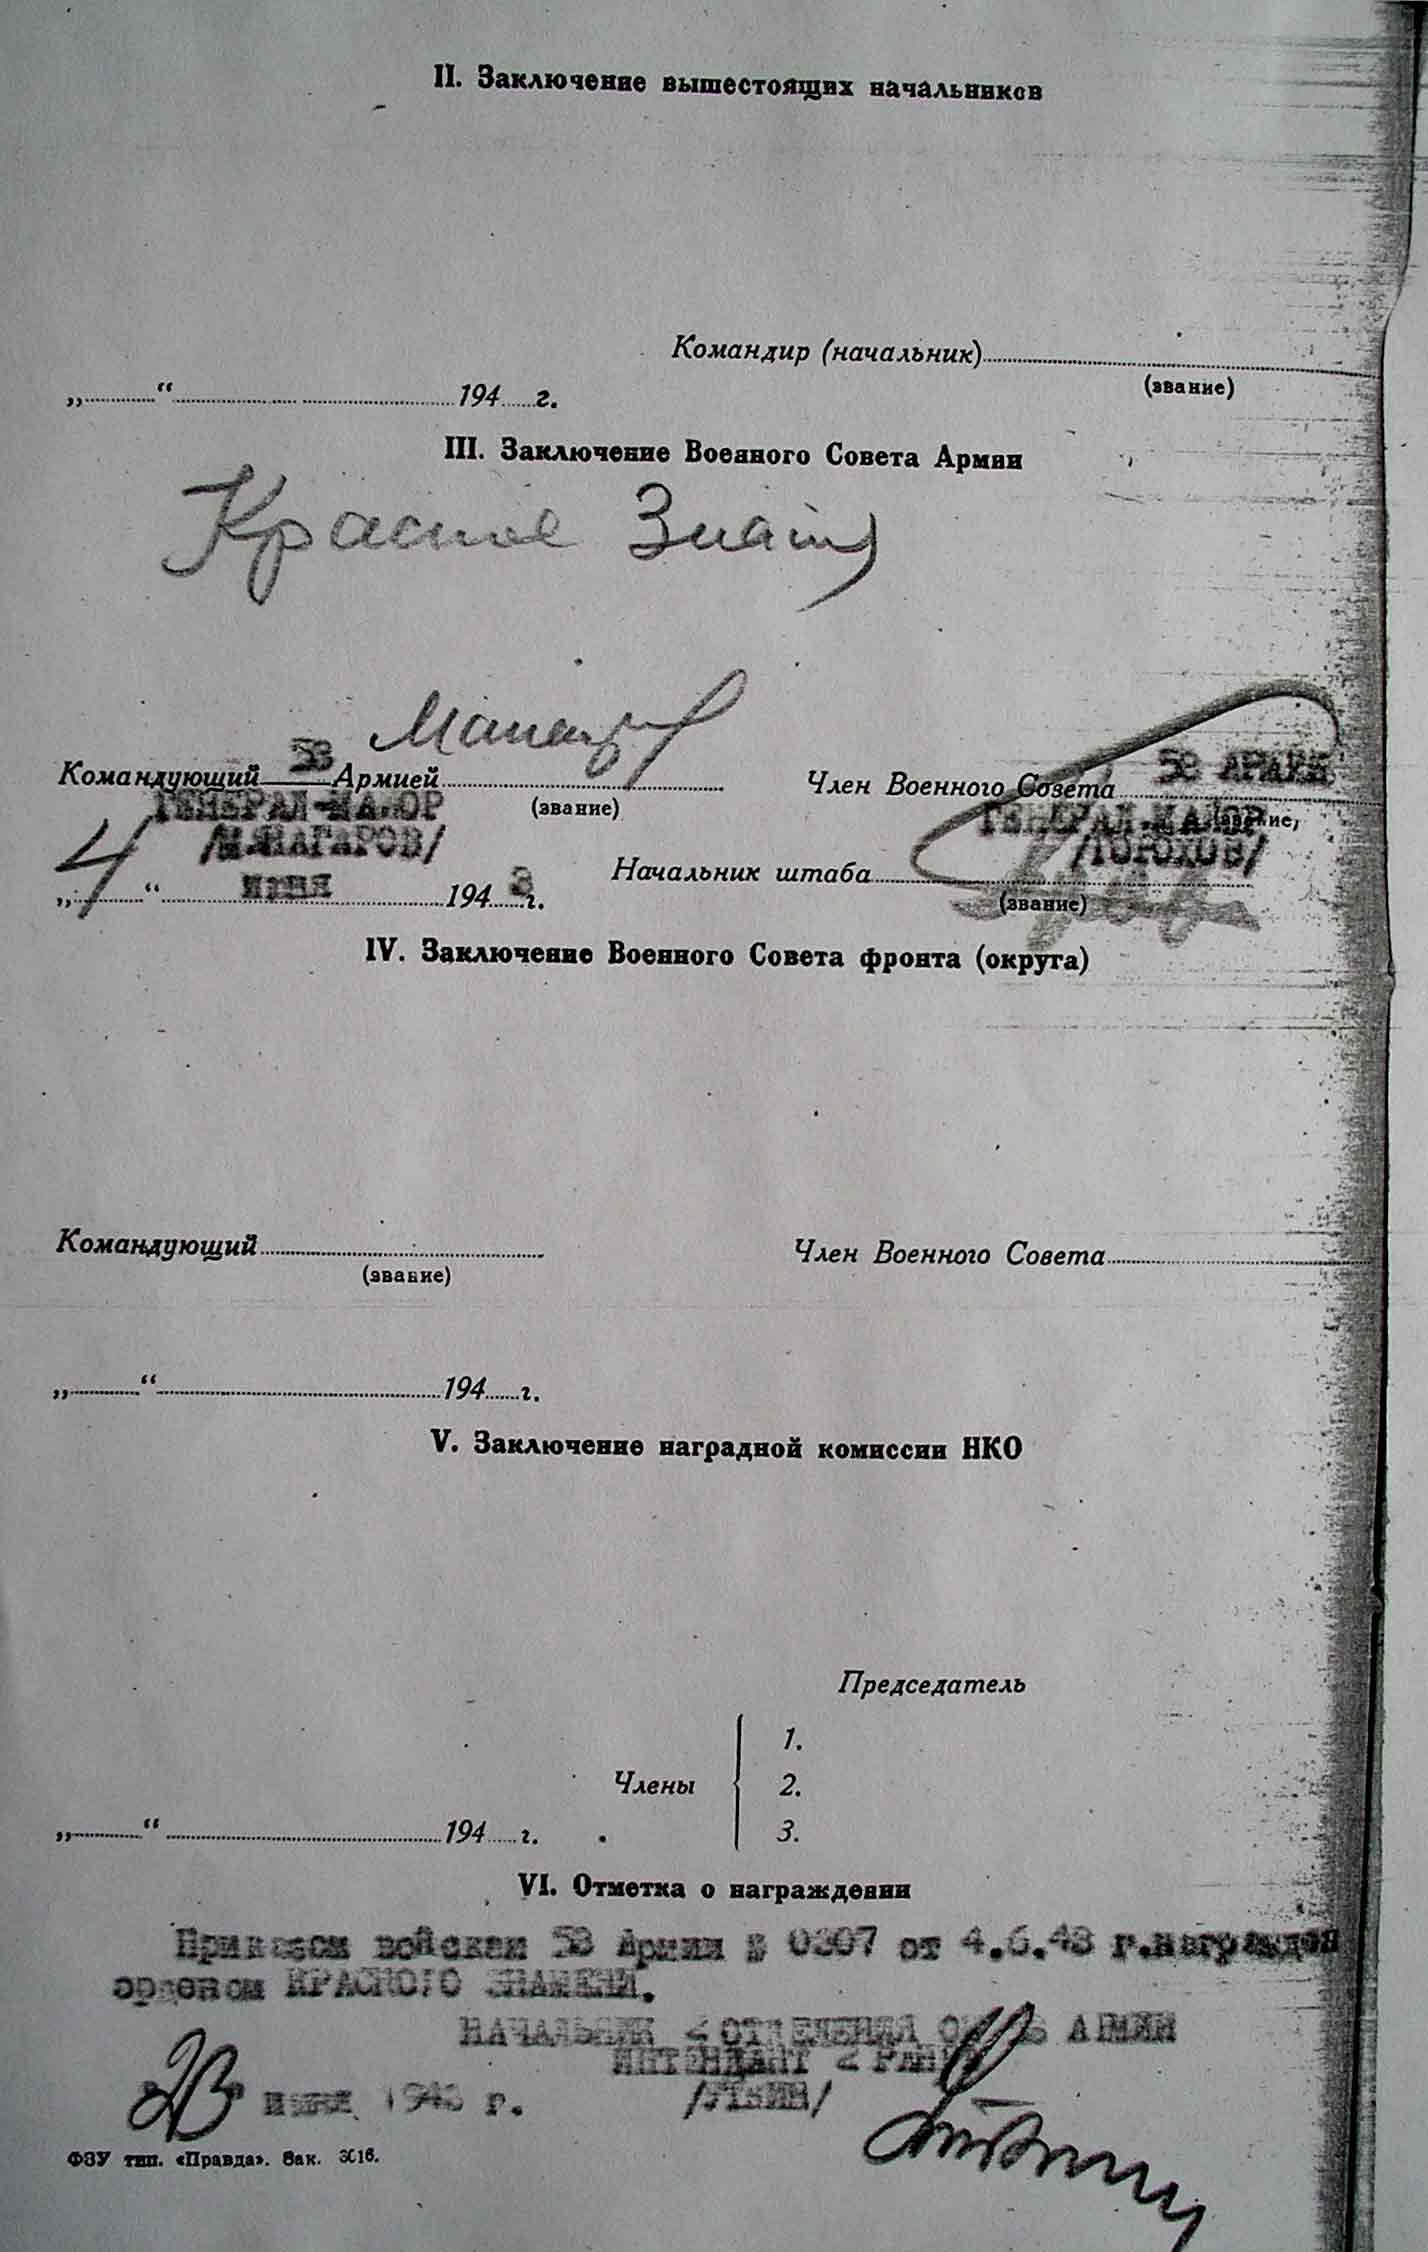 II. Заключение вышестоящих начальников
Командир (начальник)
(звание)
„ “ 194 г.
III. Заключение Военного Совета Армии
Красное Знамя
Командующий 53 Армией
(звание)
ГЕНЕРАЛ-МАЙОР
/И.МАНАГАРОВ/
Член Военного Совета 53 АРМИИ
ГЕНЕРАЛ-МАЙОР
/ГОРОХОВ/
„4“ июня 1943 г.
Начальник штаба
(звание)
IV. Заключение Военного Совета фронта (округа)
Командующий
(звание)
Член Военного Совета
„ “ 194 г.
V. Заключение наградной комиссии НКО
Председатель
Члены
1.
2.
3.
„ “ 194 г.
VI. Отметка о награждении
Приказом войскам 53 Армии № 0307 от 4.6.43 г.награжден
орденом КРАСНОГО ЗНАМЕНИ.
НАЧАЛЬНИК ОТДЕЛЕНИЯ АРМИИ
ИНТЕНДАНТ РАНГА
"23" июня 1943 г.
ФЗУ тип. «Правда». Зак. 3016.